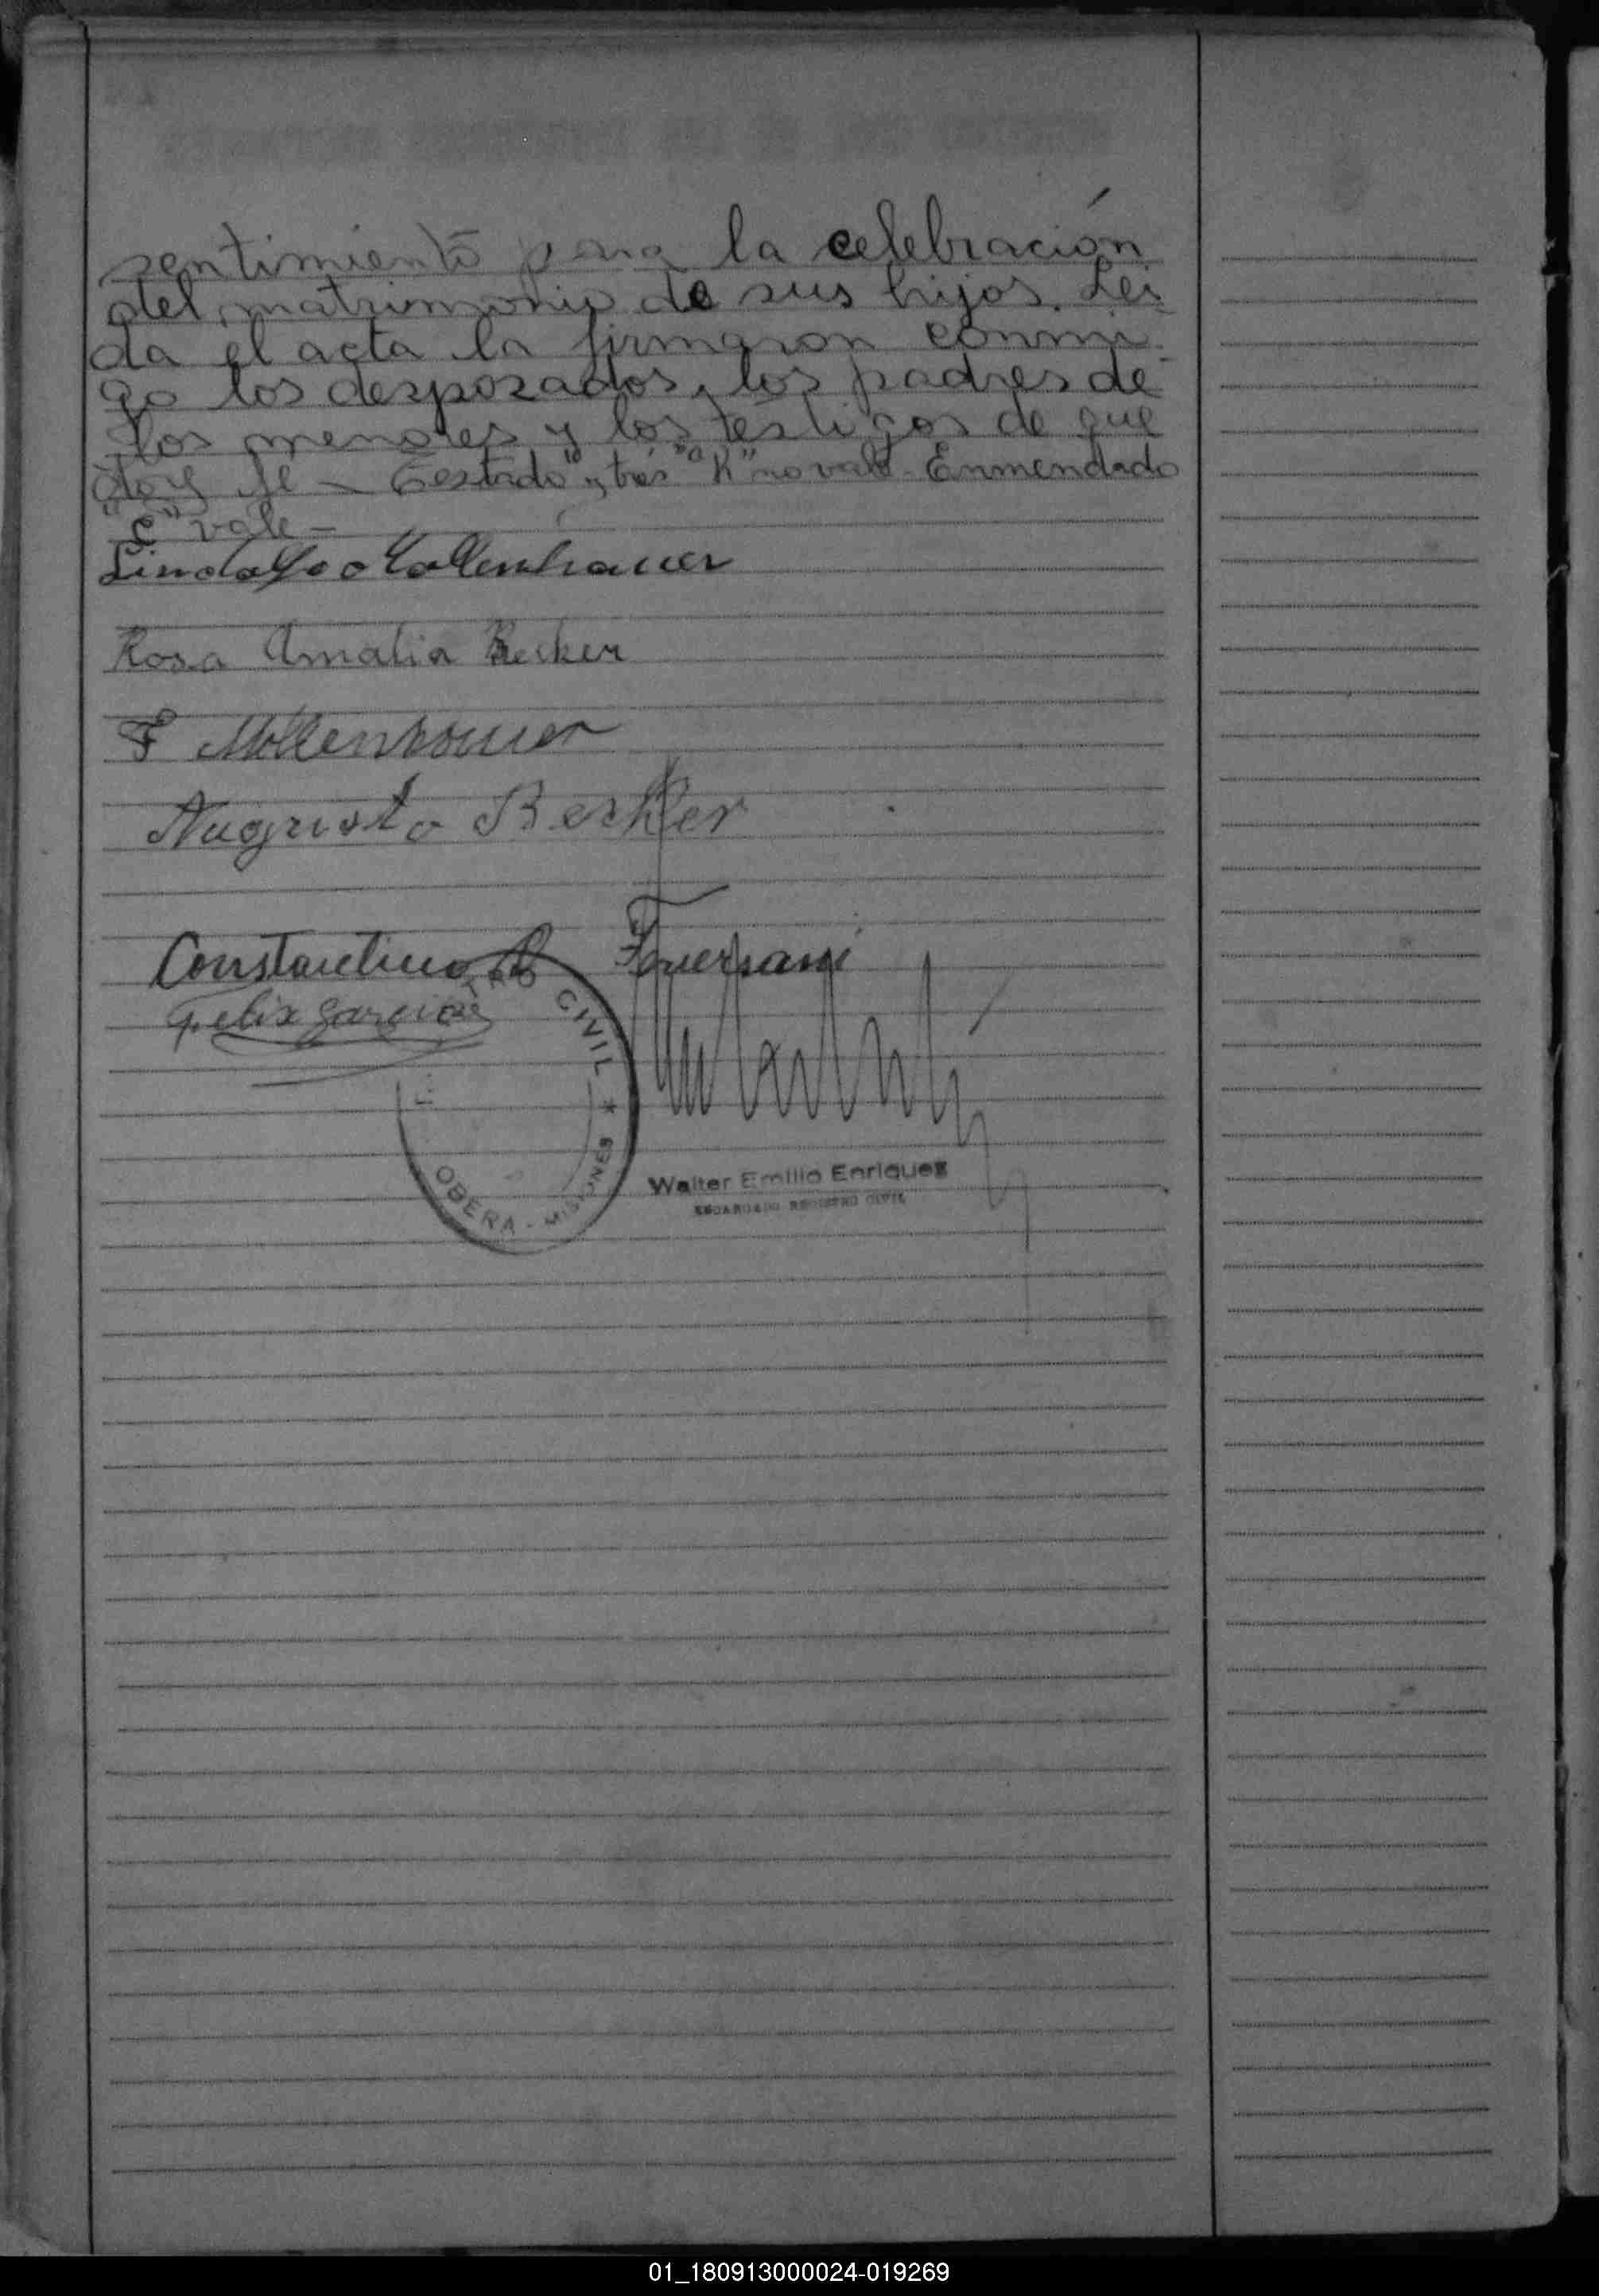 sentimiento para la celebración
del matrimonio de sus hijos. Lei
da el acta la firmaron conmi-
go los desposados, los padres de
los menores y los testigos de que
doy fe - Testado "y tres" "K" no vale - Enmendado
"e" vale -
Lindolfo Mollenhauer
Rosa Amalia Becker
F Mollenhauer
Augusto Becker
Constantino
Felix Garcia
CIVIL *
OBERA - MISIONES
Walter Emilio Enriquez
ENCARGADO REGISTRO CIVIL
01_180913000024-019269